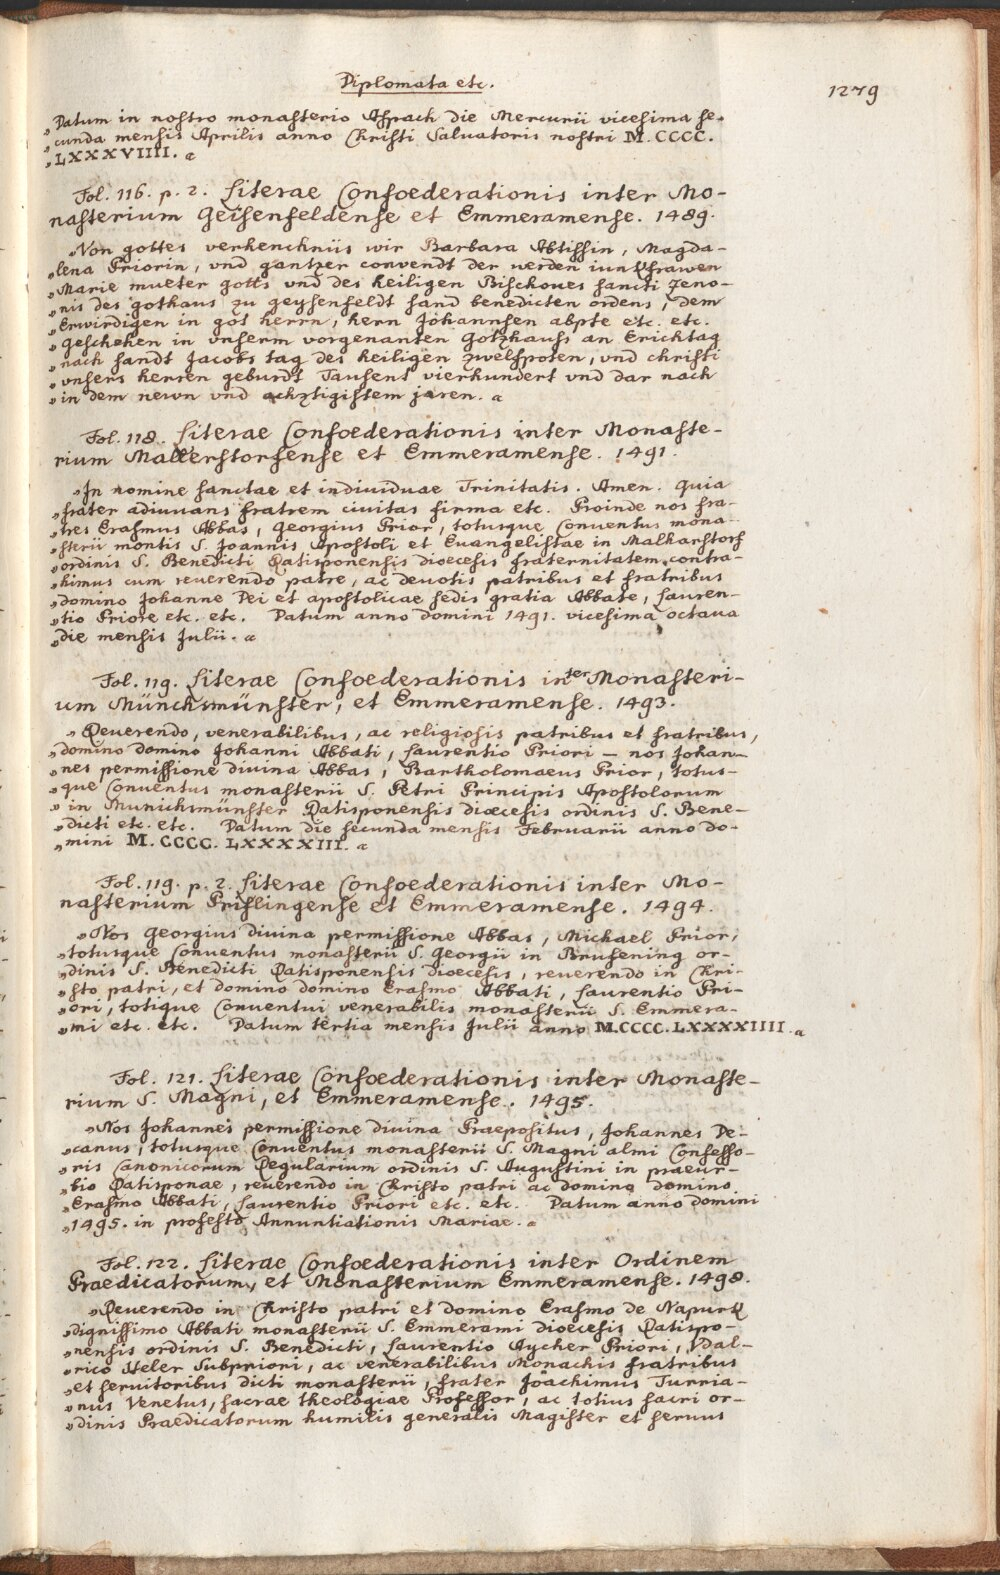 Diplomata etc.
1279
„Datum in nostro monasterio Aspach die Mercurii vicesima se-
„cunda mensis Aprilis anno Christi Salvatoris nostri M.CCCC.
„LXXXVIIII. „
Fol. 116. p. 2. Literae Confoederationis inter Mo-
nasterium Geisenfeldense et Emmeramense. 1489.
„Von gottes verhencknüs wir Barbara Abtissin, Magda-
„lena Priorin, vnd gantzer convendt der werden iunckfrawen
„Marie mueter gotts vnd des heiligen Bischoues sancti Zeno-
„nis des gothaus zu geysenfeldt sand benedicten ordens, dem
„Erwirdigen in got herrn, hern Johannsen abpte etc. etc.
„Geschehen in vnserm vorgenanten Gotzhauss an Erichtag
„nach sandt Jacobs tag des heiligen zwelfpoten, vnd christi
„vnsers herren geburdt Tausent vierhundert vnd dar nach
„in dem newn vnd achztigistem jaren. „
Fol. 118. Literae Confoederationis inter Monaste-
rium Mallerstorfense et Emmeramense. 1491.
„In nomine sanctae et individuae Trinitatis. Amen. Quia
„frater adiuuans fratrem ciuitas firma etc. Proinde nos fra-
„tres Erasmus Abbas, Georgius Prior, totusque Conuentus mona-
„sterii montis S. Joannis Apostoli et Euangelistae in Malharstorf
„ordinis S. Benedicti Ratisponensis dioecesis fraternitatem contra-
„himus cum reuerendo patre, ac deuotis patribus et fratribus
„domino Johanne Dei et apostolicae sedis gratia Abbate, Lauren-
„tio Priore etc. etc. Datum anno domini 1491. vicesima octaua
„die mensis Julii. „
Fol. 119. Literae Confoederationis inter Monasteri-
um Münchsmünster, et Emmeramense. 1493.
„Reuerendo, venerabilibus, ac religiosis patribus et fratribus,
„domino domino Johanni Abbati, Laurentio Priori – nos Johan-
„nes permissione diuina Abbas, Bartholomaeus Prior, totus-
„que Conuentus monasterii S. Petri Principis Apostolorum
„in Munichsmünster Ratisponensis dioecesis ordinis S. Bene-
„dicti etc. etc. Datum die secunda mensis Februarii anno do-
„mini M.CCCC.LXXXXIII. „
Fol. 119. p. 2. Literae Confoederationis inter Mo-
nasterium Priflingense et Emmeramense. 1494.
„Nos Georgius diuina permissione Abbas, Michael Prior,
„totusque Conuentus monasterii S. Georgii in Brufening or-
„dinis S. Benedicti Ratisponensis dioecesis, reuerendo in Chri-
„sto patri, et domino domino Erasmo Abbati, Laurentio Pri-
„ori, totique Conuentui venerabilis monasterii S. Emmera-
„mi etc. etc. Datum tertia mensis Julii anno M.CCCC.LXXXXIIII. „
Fol. 121. Literae Confoederationis inter Monaste-
rium S. Magni, et Emmeramense. 1495.
„Nos Johannes permissione diuina Praepositus, Johannes De-
„canus, totusque Conuentus monasterii S. Magni almi Confesso-
„ris Canonicorum Regularium ordinis S. Augustini in praeur-
„bio Ratisponae, reuerendo in Christo patri ac domino domino
„Erasmo Abbati, Laurentio Priori etc. etc. Datum anno domini
„1495. in profesto Annuntiationis Mariae. „
Fol. 122. Literae Confoederationis inter Ordinem
Praedicatorum, et Monasterium Emmeramense. 1498.
„Reuerendo in Christo patri et domino Erasmo de Napurk
„dignissimo Abbati monasterii S. Emmerami dioecesis Ratispo-
„nensis ordinis S. Benedicti, Laurentio Aycher Priori, Vdal-
„rico Heler Subpriori, ac venerabilibus Monachis fratribus
„et seruitoribus dicti monasterii, frater Joachimus Turria-
„nus Venetus, sacrae theologiae Professor, ac totius sacri or-
„dinis Praedicatorum humilis generalis Magister et seruus